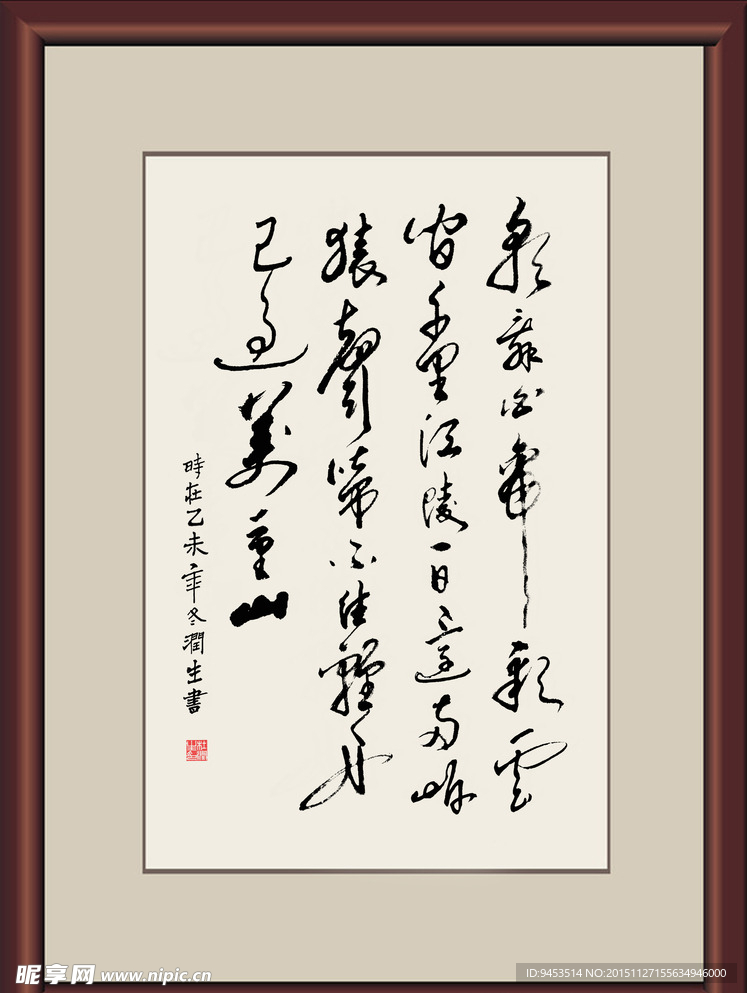 朝辭白帝彩雲
間千里江陵一日還兩岸
猿聲啼不住輕舟
已過萬重山
時在乙未年冬潤生書
昵享网 www.nipic.cn
ID:9453514 NO:20151127155634946000